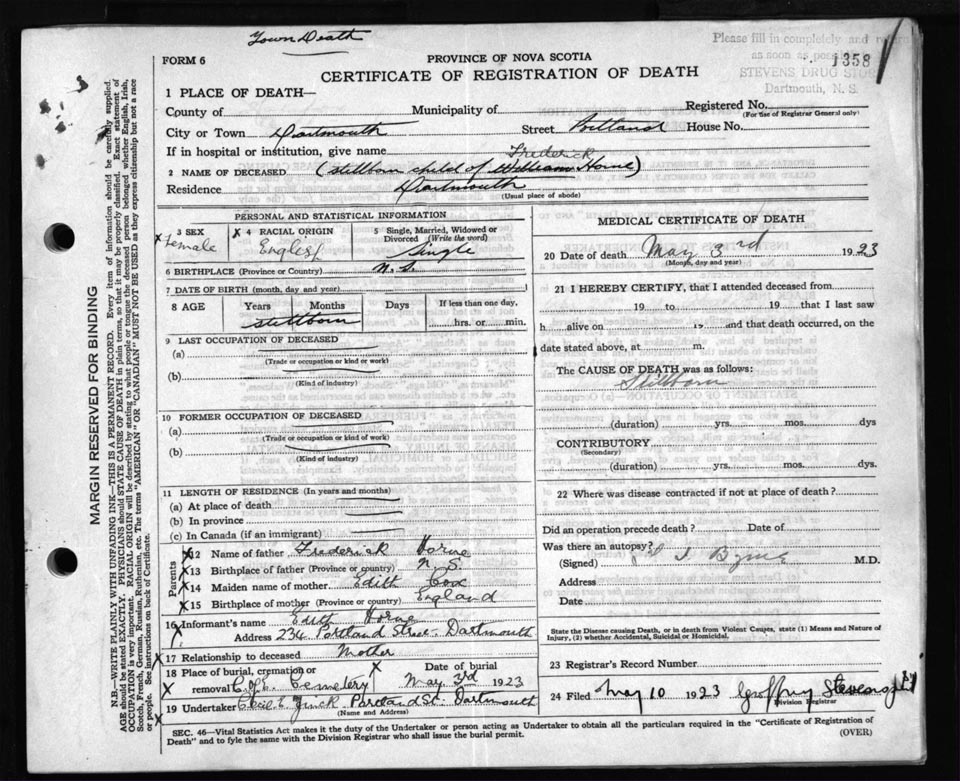 Town Death
Please fill in completely and return
as soon as possible
STEVENS DRUG STORE
Dartmouth, N. S.
1358
FORM 6
PROVINCE OF NOVA SCOTIA
CERTIFICATE OF REGISTRATION OF DEATH
1 PLACE OF DEATH—
County of Municipality of Registered No.
(For use of Registrar General only)
City or Town Dartmouth Street Portland House No.
If in hospital or institution, give name
Frederick
2 NAME OF DECEASED (stillborn child of William Horne)
Residence Dartmouth
(Usual place of abode)
PERSONAL AND STATISTICAL INFORMATION
x 3 SEX x 4 RACIAL ORIGIN 5 Single, Married, Widowed or Divorced (Write the word)
Female English Single
6 BIRTHPLACE (Province or Country) N. S.
7 DATE OF BIRTH (month, day and year)
8 AGE Years Months Days If less than one day,
stillborn hrs. or min.
9 LAST OCCUPATION OF DECEASED
(a)
(Trade or occupation or kind of work)
(b)
(Kind of industry)
10 FORMER OCCUPATION OF DECEASED
(a)
(Trade or occupation or kind of work)
(b)
(Kind of industry)
11 LENGTH OF RESIDENCE (In years and months)
(a) At place of death
(b) In province
(c) In Canada (if an immigrant)
Parents
x 12 Name of father Frederick Horne
x 13 Birthplace of father (Province or country) N. S.
x 14 Maiden name of mother Edith Cox
x 15 Birthplace of mother (Province or Country) England
16 Informant's name Edith Horne
x Address 234 Portland Street Dartmouth
x 17 Relationship to deceased Mother
18 Place of burial, cremation or x Date of burial
x removal C of E. Cemetery May 3rd 1923
19 Undertaker Cecil E. Zinck Portland St. Dartmouth
(Name and Address)
MEDICAL CERTIFICATE OF DEATH
20 Date of death May 3rd 1923
(Month, day and year)
21 I HEREBY CERTIFY, that I attended deceased from
19 to 19 that I last saw
h alive on 19 and that death occurred, on the
date stated above, at m.
The CAUSE OF DEATH was as follows:
Stillborn
(duration) yrs. mos. dys
CONTRIBUTORY
(Secondary)
(duration) yrs. mos. dys.
22 Where was disease contracted if not at place of death?
Did an operation precede death? Date of
Was there an autopsy?
(Signed) Byrne M.D.
Address
Date
State the Disease causing Death, or in death from Violent Causes, state (1) Means and Nature of
Injury, (2) whether Accidental, Suicidal or Homicidal.
23 Registrar's Record Number
24 Filed May 10 1923 Geoffrey Stevens
Division Registrar
SEC. 46—Vital Statistics Act makes it the duty of the Undertaker or person acting as Undertaker to obtain all the particulars required in the "Certificate of Registration of
Death" and to fyle the same with the Division Registrar who shall issue the burial permit. (OVER)
MARGIN RESERVED FOR BINDING
N.B.—WRITE PLAINLY WITH UNFADING INK—THIS IS A PERMANENT RECORD. Every item of information should be carefully supplied.
AGE should be stated EXACTLY. PHYSICIANS should STATE CAUSE OF DEATH in plain terms, so that it may be properly classified. Exact statement of
OCCUPATION is very important. RACIAL ORIGIN will be described by stating to what people or tongue the deceased person belonged whether English, Irish,
Scotch, French, German, Russian, Ruthenian, etc. The terms "AMERICAN" OR "CANADIAN" MUST NOT BE USED as they express citizenship but not a race
or people. See instructions on back of Certificate.